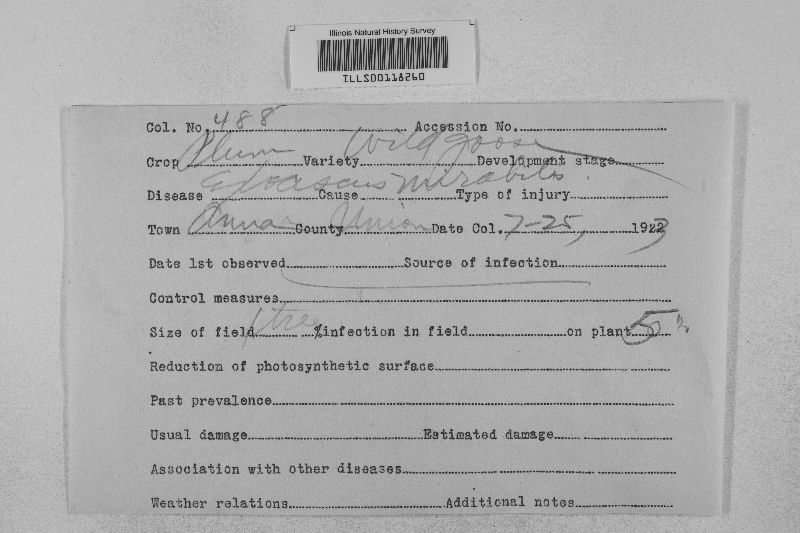 Illinois Natural History Survey
ILLS00118260
Col. No. 488 Accession No.
Crop Plum Variety Wild goose Development stage
Disease Exoascus mirabilis Cause Type of injury
Town Anna County Union Date Col. 7-25, 1923
Date 1st observed Source of infection
Control measures
Size of field 1 tree %infection in field on plant 5 %
Reduction of photosynthetic surface
Past prevalence
Usual damage Estimated damage
Association with other diseases
Weather relations Additional notes